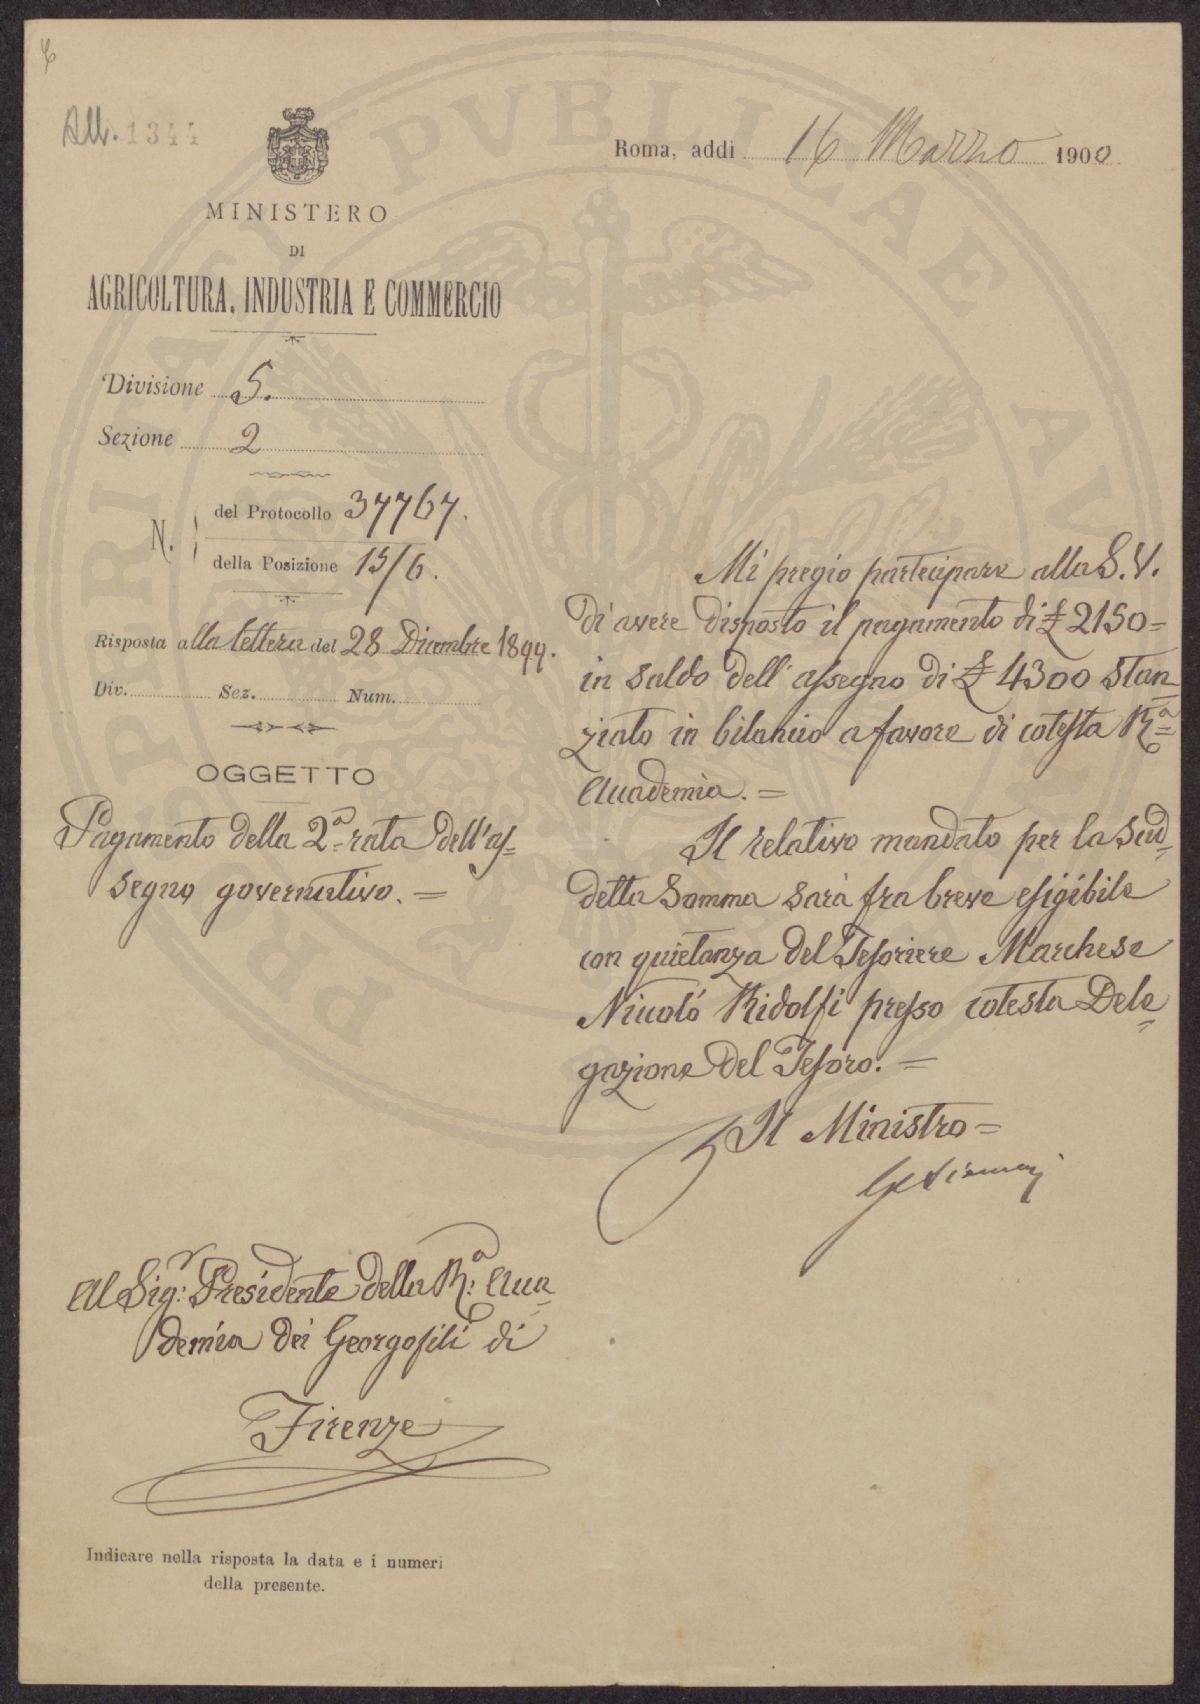 All. 1344
Roma, addì 16 Marzo 1900
MINISTERO
DI
AGRICOLTURA, INDUSTRIA E COMMERCIO
Divisione 5.
Sezione 2
N. del Protocollo 37767.
della Posizione 15/6.
Risposta alla lettera del 28 Dicembre 1899.
Div. Sez. Num.
OGGETTO
Pagamento della 2ª rata dell'as=
segno governativo. =
Mi pregio partecipare alla S.V.
di avere disposto il pagamento di £ 2150=
in saldo dell'assegno di £ 4300 stan=
ziato in bilancio a favore di cotesta Rª=
Accademia. =
Il relativo mandato per la sud=
detta somma sarà fra breve esigibile
con quietanza del Tesoriere Marchese
Niccolò Ridolfi presso cotesta Dele=
gazione del Tesoro. =
Il Ministro =
Al Sigr: Presidente della R:ª Acca=
demia dei Georgofili di
Firenze
Indicare nella risposta la data e i numeri
della presente.
PROSPERITATI PUBLICAE AU